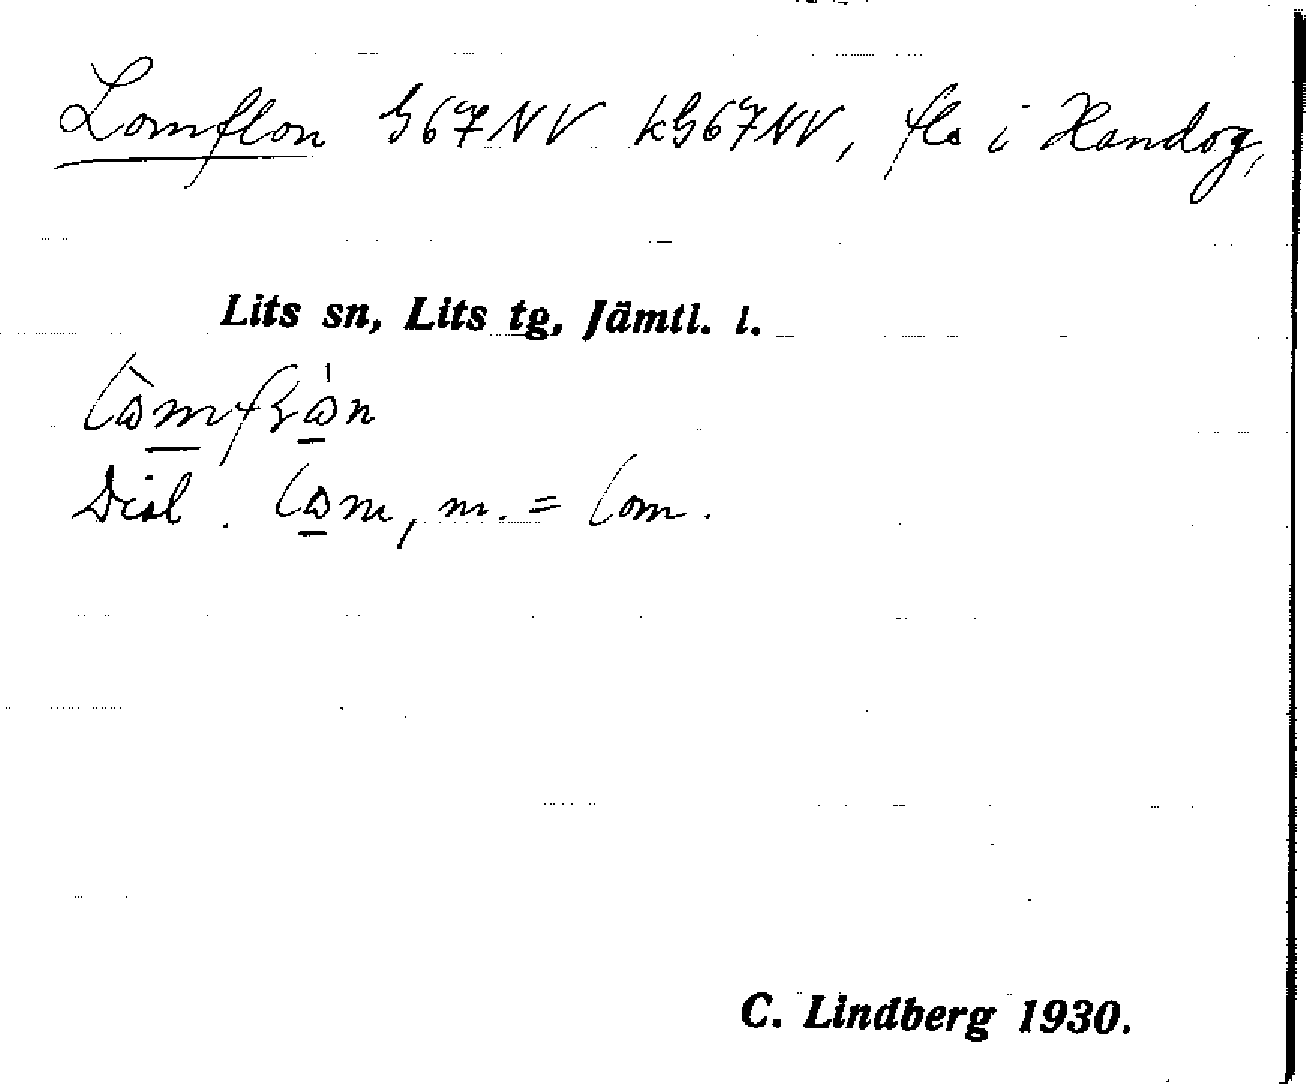 Lomflon G67NV kG67NV, flo i Handog,
Lits sn, Lits tg, Jämtl. l.
Dial. lɷm, m. = lom.
C. Lindberg 1930.